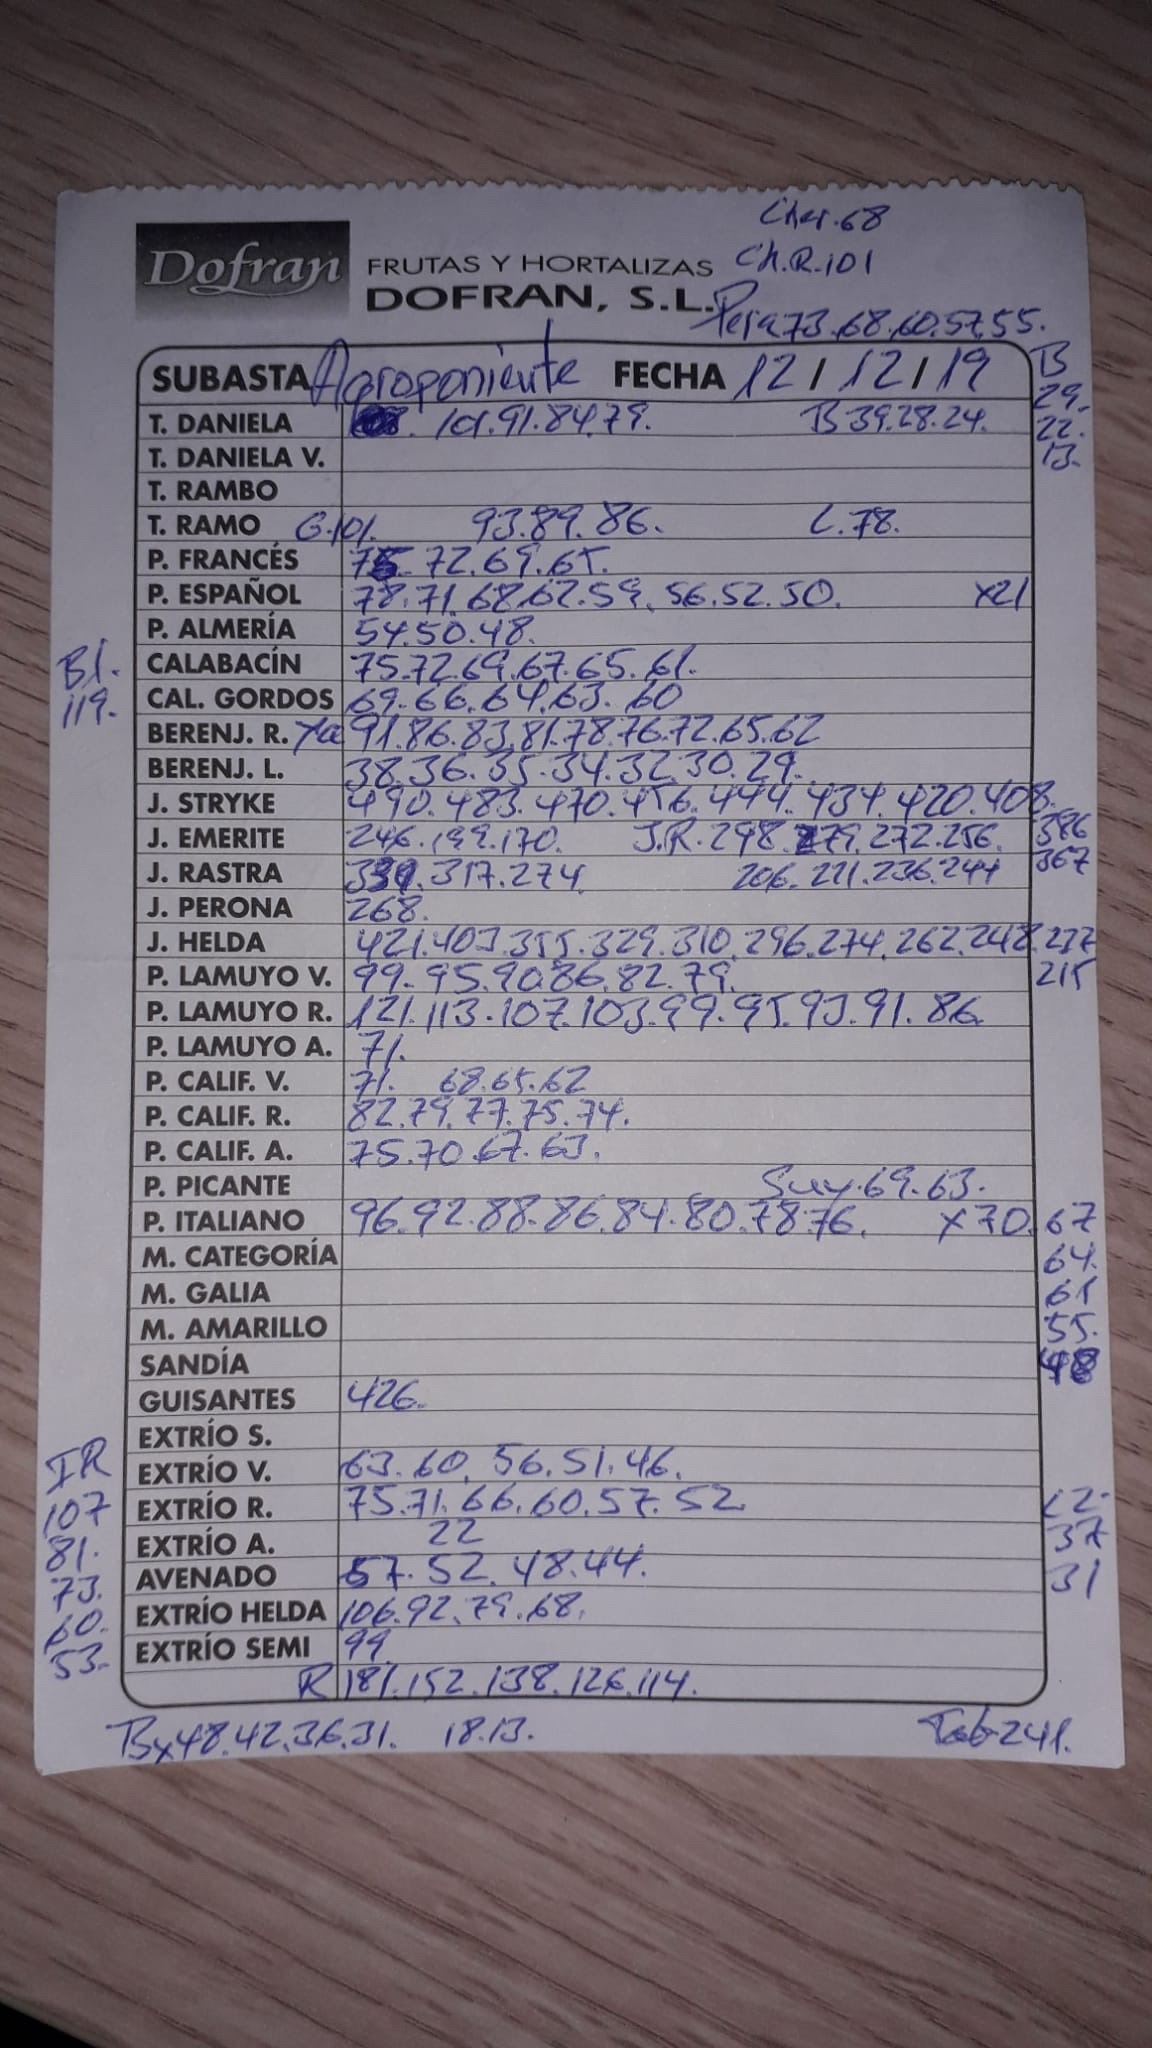 Cher.68
Dofran FRUTAS Y HORTALIZAS Ch.R.101
DOFRAN, S.L. Pera 73.68.60.57.55.
SUBASTA Agroponiente FECHA 12/12/19 B
29.
T. DANIELA 101.91.84.79. B 39.28.24. 22.
T. DANIELA V. 13.
T. RAMBO
T. RAMO G.101. 93.89.86. L.78.
P. FRANCÉS 75.72.69.65.
P. ESPAÑOL 78.71.68.62.59.56.52.50. x21
P. ALMERÍA 54.50.48.
Bl. CALABACÍN 75.72.69.67.65.61.
119. CAL. GORDOS 69.66.64.63.60
BERENJ. R. 91.86.83.81.78.76.72.65.62
BERENJ. L. 38.36.35.34.32.30.29.
J. STRYKE 490.483.470.456.444.434.420.408.
J. EMERITE 246.199.170. J.R.298.279.272.256. 386
J. RASTRA 317.274. 206.221.236.244 367
J. PERONA 268.
J. HELDA 421.403.355.329.310.296.274.262.248.237
P. LAMUYO V. 99.95.90.86.82.79. 215
P. LAMUYO R. 121.113.107.103.99.95.93.91.86.
P. LAMUYO A. 71.
P. CALIF. V. 71. 68.65.62
P. CALIF. R. 82.79.77.75.74.
P. CALIF. A. 75.70.67.63.
P. PICANTE 69.63.
P. ITALIANO 96.92.88.86.84.80.78.76. x70.67
M. CATEGORÍA 64.
M. GALIA 61
M. AMARILLO 55.
SANDÍA 48
GUISANTES 426.
EXTRÍO S.
IR EXTRÍO V. 63.60.56.51.46.
107 EXTRÍO R. 75.71.66.60.57.52
81. EXTRÍO A. 22 37
73. AVENADO 57.52.48.44. 31
60. EXTRÍO HELDA 106.92.79.68.
53. EXTRÍO SEMI 99
R 181.152.138.126.114.
Bx48.42.36.31. 18.13. 241.